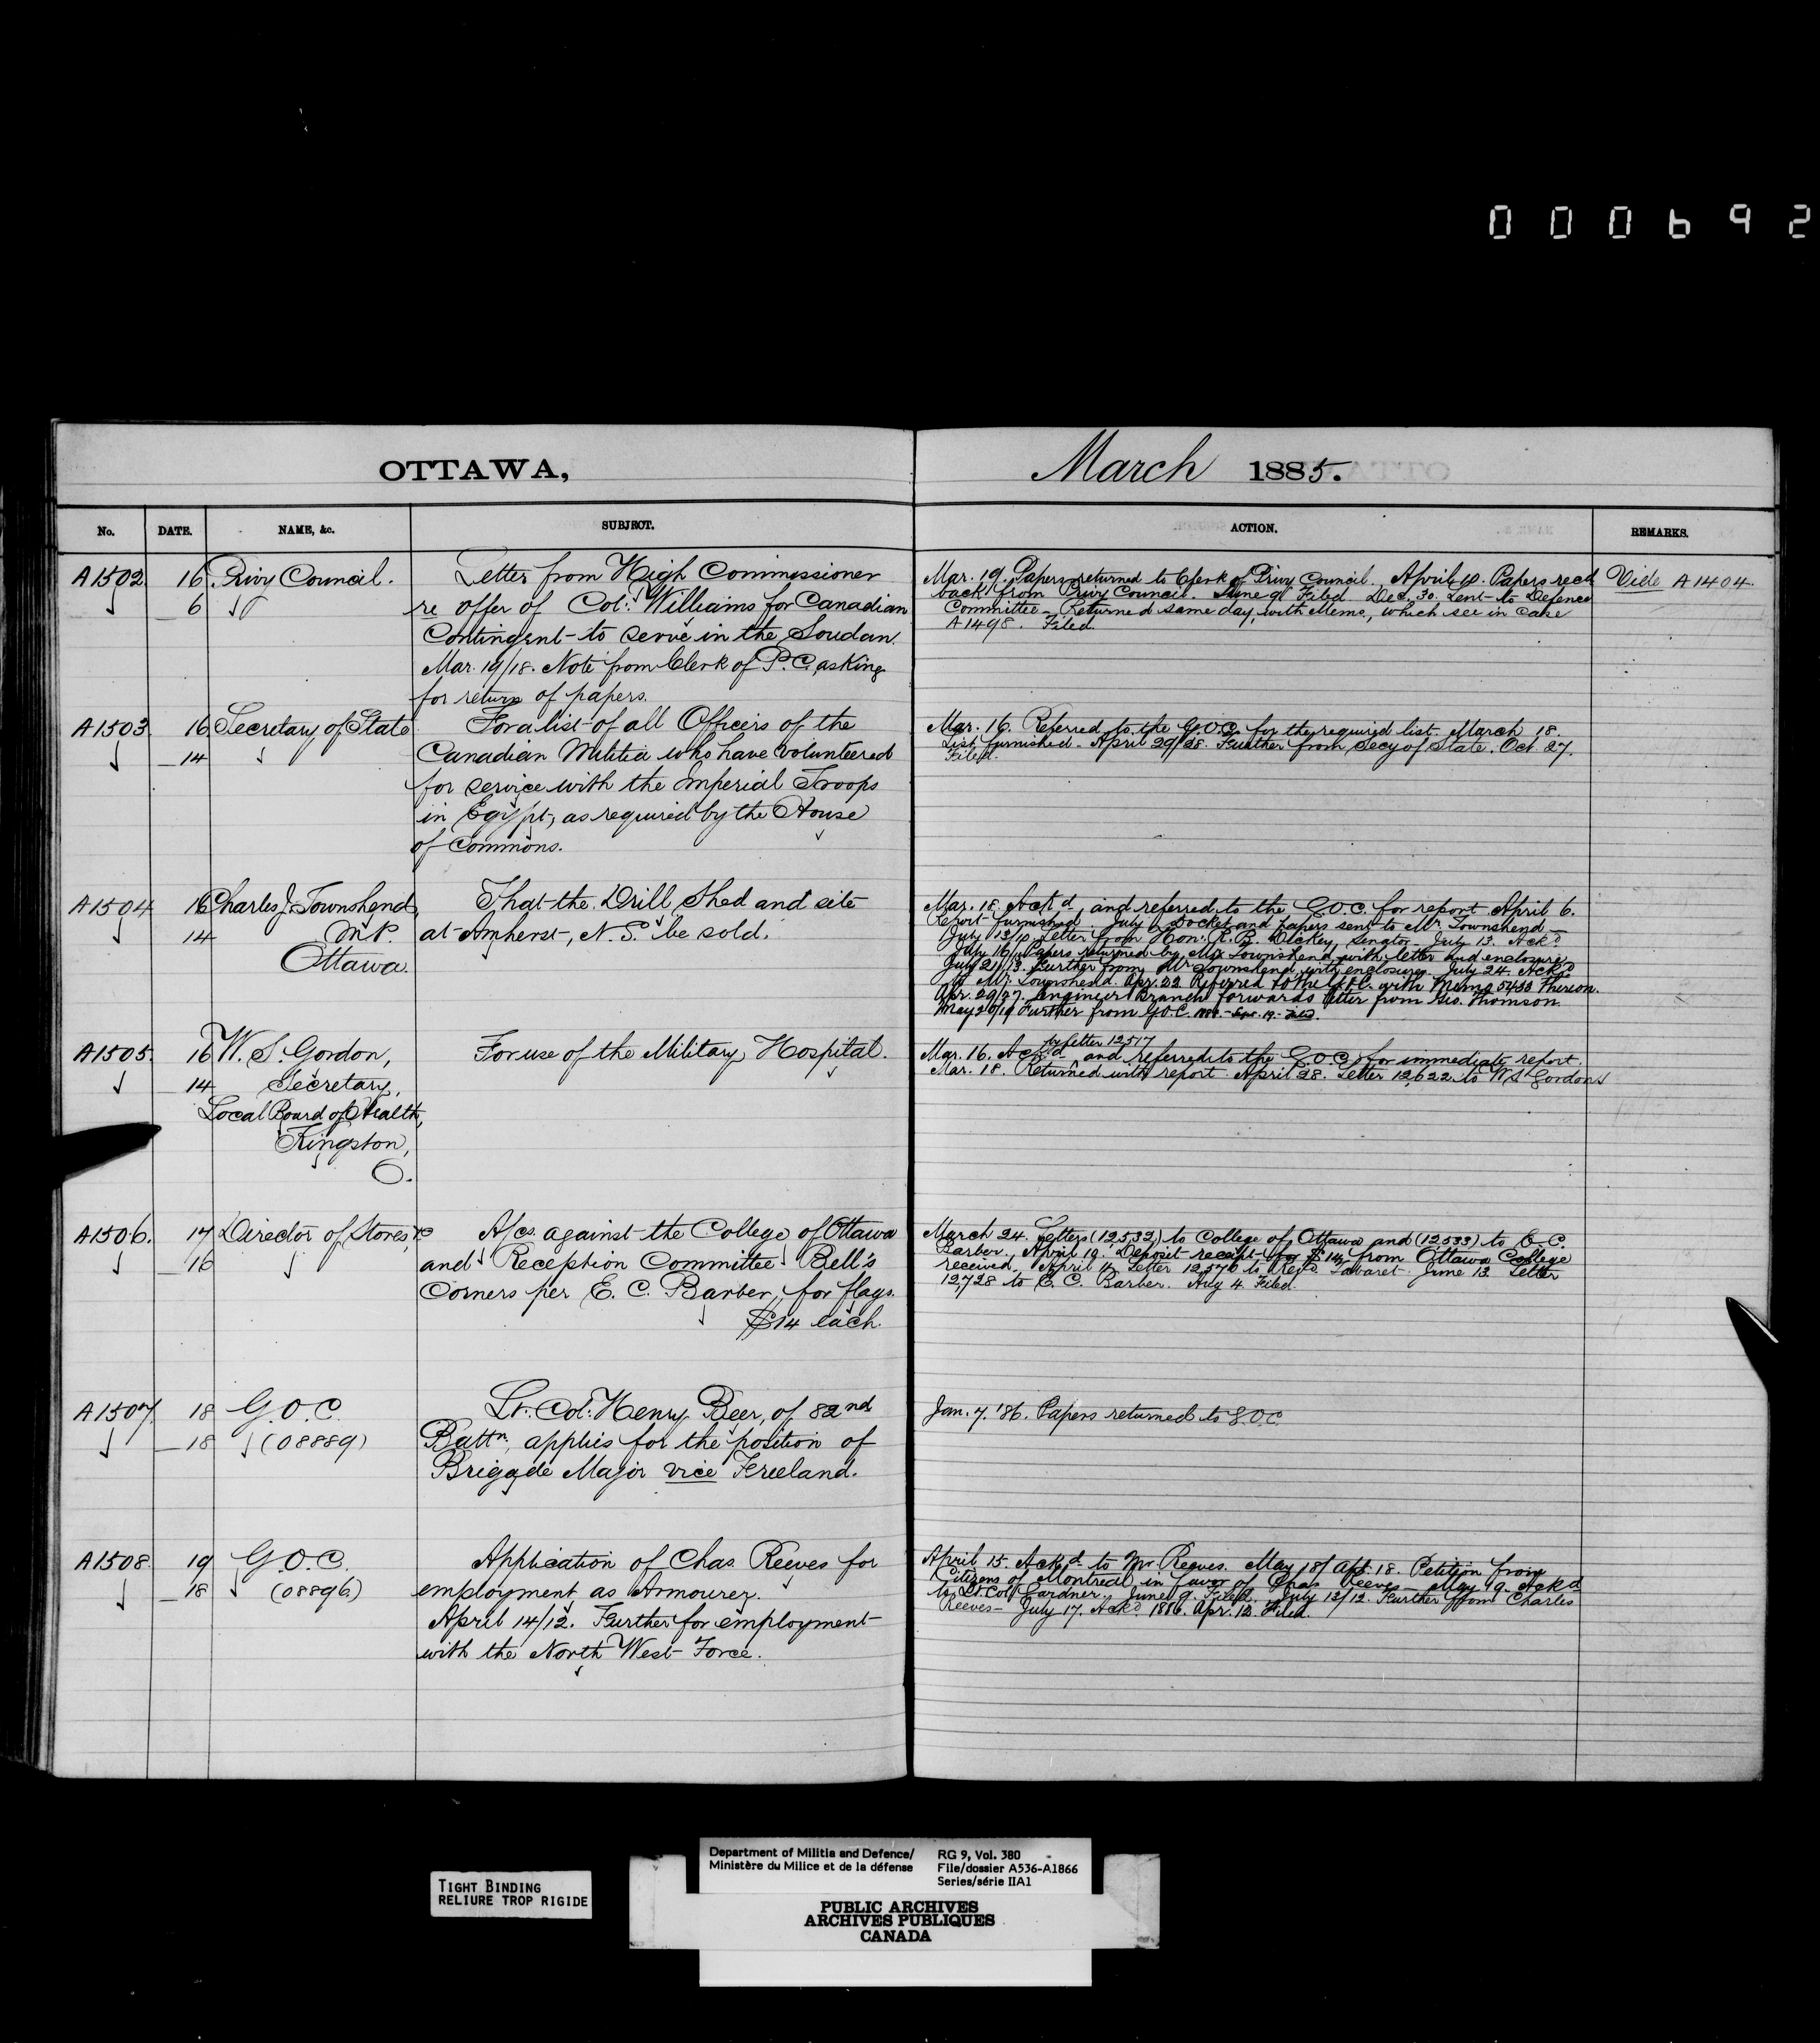 000692
OTTAWA,
March 1885.
No.
DATE.
NAME, &c.
SUBJECT.
ACTION.
REMARKS.
A1502
16
6
Privy Council.
Letter from High Commissioner
re offer of Col: Williams for Canadian
Contingent to serve in the Soudan.
Mar. 19/18. Note from Clerk of P.C. asking
for return of papers.
Mar. 19. Papers returned to Clerk of Privy Council. April 10. Papers recd
back from Privy Council. June 9 Filed. Dec. 30. Sent to Defence
Committee - Returned same day, with Memo, which see in case
A1498. Filed.
Vide A1404.
A1503
16
14
Secretary of State
For a list of all Officers of the
Canadian Militia who have volunteered
for service with the Imperial Troops
in Egypt, as required by the House
of Commons.
Mar. 16. Referred to the G.O.C. for the required list. March 18.
List furnished. April 29/28. Further from Secy of State. Oct 27.
Filed.
A1504
16
14
Charles J. Townshend,
M.P.
Ottawa.
That the Drill Shed and site
at Amherst, N.S. be sold.
Mar. 18. Ackd, and referred to the G.O.C. for report April 6.
Report furnished. July Docket and papers sent to Mr. Townshend -
July 13/10 Letter from Hon. R. B. Dickey, Senator - July 13. Ackd
July 16, Papers returned by Mr. Townshend with letter and enclosure
July 21/13. Further from Mr Townshend, with enclosure. July 24. Ackd
to Mr. Townshend. Apr. 22 Referred to the G.O.C. with Memo 5453 thereon.
Apr. 29/27. Engineer Branch forwards letter from Geo. Thomson.
May 20/19 Further from G.O.C. 1886.- Sept. 19.- Filed.
A1505
16
14
W. S. Gordon,
Secretary,
Local Board of Health,
Kingston,
O.
For use of the Military Hospital.
letter 12517
Mar. 16. Ackd and referred to the G.O.C. for immediate report.
Mar. 18. Returned with report. April 28. Letter 12,622 to W S Gordon
A1506.
17
16
Director of Stores, &c
A/cs. against the College of Ottawa
and Reception Committee Bell's
Corners per E. C. Barber, for flags.
$14 each.
March 24. Letters (12,532) to College of Ottawa and (12533) to E. C.
Barber. April 19. Deposit receipt for $14, from Ottawa College
received. April 4. Letter 12,576 to Revd. Tabaret. June 13. Letter
12,728 to E. C. Barber. Aug 4. Filed.
A1507
18
18
G.O.C.
(08889)
Lt. Col: Henry Beer, of 82nd
Battn, applies for the position of
Brigade Major vice Freeland.
Jan. 7. '86. Papers returned to G.O.C.
A1508
19
18
G.O.C.
(08896)
Application of Chas. Reeves for
employment as Armourer.
April 14/12. Further for employment
with the North West Force.
April 15. Ackd to Mr. Reeves. May 18/Apl. 18. Petition from
Citizens of Montreal in favor of Chas Reeves - May 19. Ackd
to Lt Col Gardner. June 9. Filed. July 13/12. Further from Charles
Reeves - July 17. Ackd. 1886. Apr. 12. Filed.
TIGHT BINDING
RELIURE TROP RIGIDE
Department of Militia and Defence/
Ministère du Milice et de la défense
RG 9, Vol. 380
File/dossier A536-A1866
Series/série IIA1
PUBLIC ARCHIVES
ARCHIVES PUBLIQUES
CANADA